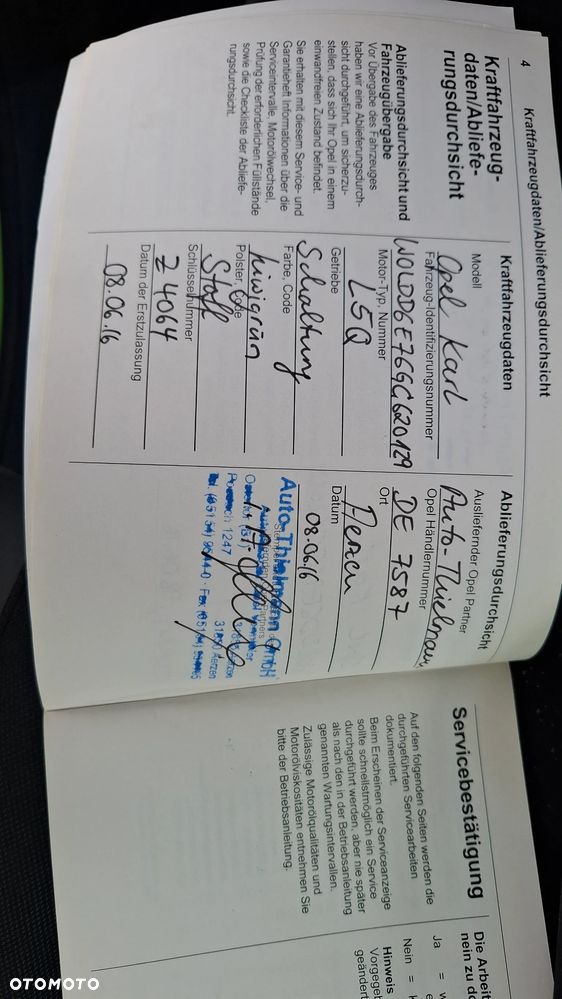 4
Kraftfahrzeugdaten/Ablieferungsdurchsicht
Kraftfahrzeug-
daten/Abliefe-
rungsdurchsicht
Ablieferungsdurchsicht und
Fahrzeugübergabe
Vor Übergabe des Fahrzeuges
haben wir eine Ablieferungsdurch-
sicht durchgeführt, um sicherzu-
stellen, dass sich Ihr Opel in einem
einwandfreien Zustand befindet.
Sie erhalten mit diesem Service- und
Garantieheft Informationen über die
Serviceintervalle, Motorölwechsel,
Prüfung der erforderlichen Füllstände
sowie die Checkliste der Abliefe-
rungsdurchsicht.
Kraftfahrzeugdaten
Modell
Opel Karl
Fahrzeug-Identifizierungsnummer
W0LDD6E76GC620129
Motor-Typ, Nummer
L5Q
Getriebe
Schaltung
Farbe, Code
kiwigrün
Polster, Code
Stoff
Schlüsselnummer
Z 4064
Datum der Erstzulassung
08.06.16
Ablieferungsdurchsicht
Ausliefernder Opel Partner
Auto-Thielmann
Opel Händlernummer
DE 7587
Ort
Aerzen
Datum
08.06.16
Auto-Thielmann GmbH
1247
Servicebestätigung
Auf den folgenden Seiten werden die
durchgeführten Servicearbeiten
dokumentiert.
Beim Erscheinen der Serviceanzeige
sollte schnellstmöglich ein Service
durchgeführt werden, aber nie später
als nach den in der Betriebsanleitung
genannten Wartungsintervallen.
Zulässige Motorölqualitäten und
Motorölviskositäten entnehmen Sie
bitte der Betriebsanleitung.
Die Arbei
nein zu do
Ja =
Nein =
Hinweis
Vorgegeb
geändert
OTOMOTO